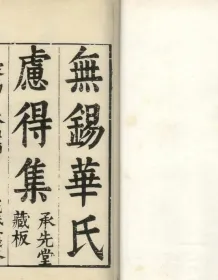 無錫華氏
慮得集
承先堂
藏板